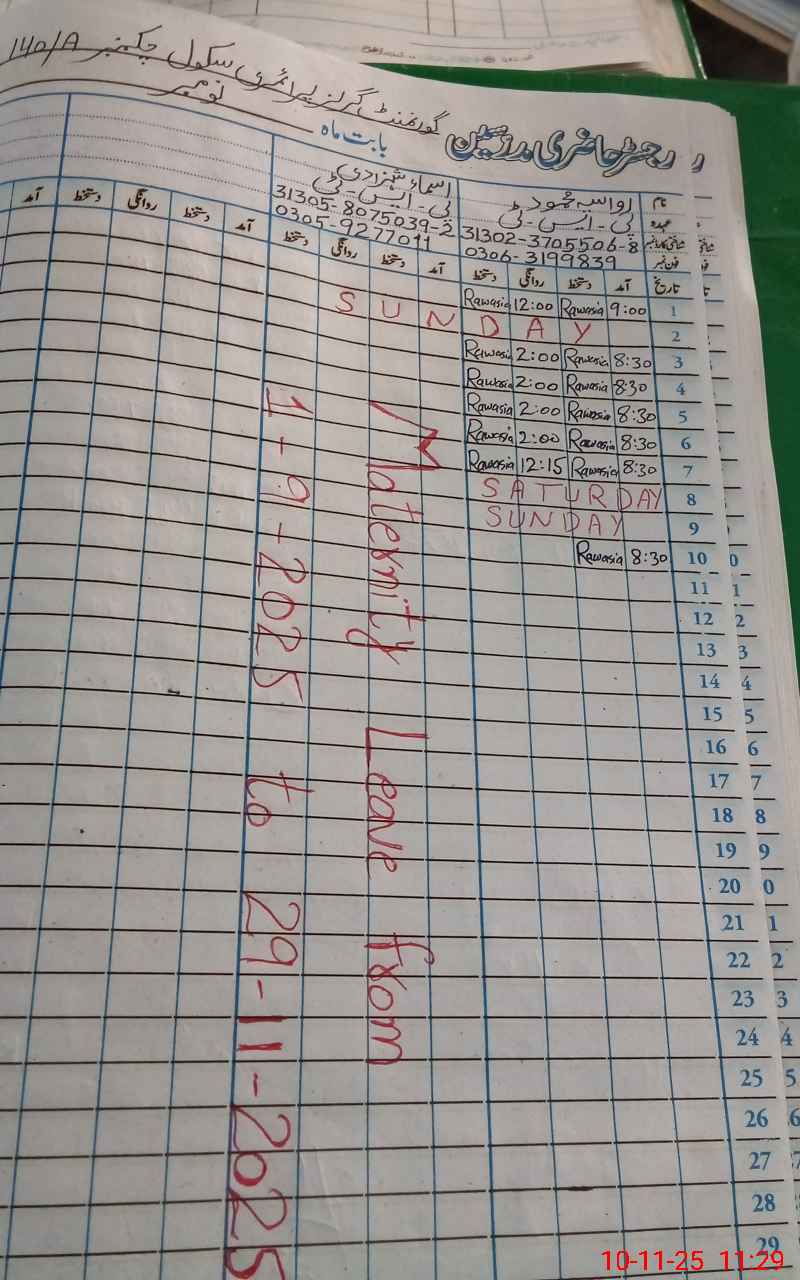 رجسٹر حاضری مدرسین گورنمنٹ گرلز پرائمری سکول چک نمبر 140/A
بابت ماہ نومبر
نام رواسیہ محمود اسماء شہزادی
عہدہ پی-ایس-ٹی پی-ایس-ٹی
شناختی کارڈ نمبر 31302-3705506-8 31305-8075039-2
فون نمبر 0306-3199839 0305-9277011
تاریخ آمد دستخط روانگی دستخط آمد دستخط روانگی دستخط آمد دستخط روانگی دستخط آمد
1 9:00 Rawasia 12:00 Rawasia
2 SUNDAY
3 8:30 Rawasia 2:00 Rawasia
4 8:30 Rawasia 2:00 Rawasia
5 8:30 Rawasia 2:00 Rawasia
6 8:30 Rawasia 2:00 Rawasia
7 8:30 Rawasia 12:15 Rawasia
8 SATURDAY
9 SUNDAY
10 8:30 Rawasia
11
12
13
14
15
16
17
18
19
20
21
22
23
24
25
26
27
28
29
Maternity Leave from
1-9-2025 to 29-11-2025
10-11-25 11:29